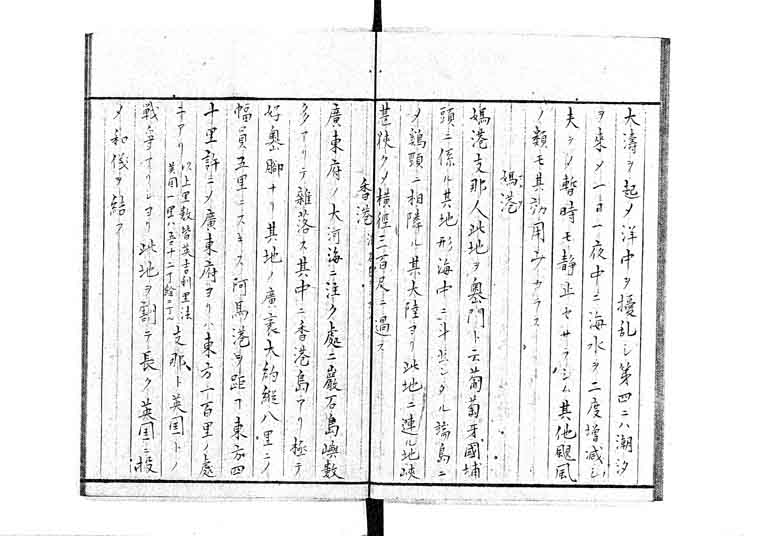 大濤ヲ起メ洋中ヲ擾乱シ第四ニハ潮汐
ヲ来メ一日一夜中ニ海水ヲ二度増減シ
夫シメ暫時モ静止セサラシム其他颶風
ノ類モ其功用少カラス
媽港
媽港支那人此地ヲ奥門ト云葡萄牙國埔
頭ニ係ル其地形海中ニ斗出シタル島ニ
メ鶏頭ニ相隣ル其大陸ヨリ此地ニ連ル地峡
甚狭クメ横徑三百尺ニ過ス
香港
廣東府ノ大河海ニ注ク處ニ巖石島嶼数
多アリテ雑落ス其中ニ香港島アリ極テ
好奥脚ナリ其地ノ廣袤大約縦八里ニノ
幅員五里ニスキス阿馬港ヲ距丁東方四
十里許ニメ廣東府ヨリハ東方一百里ノ處
ニアリ
以上里数皆英吉利里法
英国一里ハ五十二丁餘
支那ト英国トノ
戦争アリシヨリ此地ヲ割テ長ク英国ニ投
メ和儀ヲ結ス